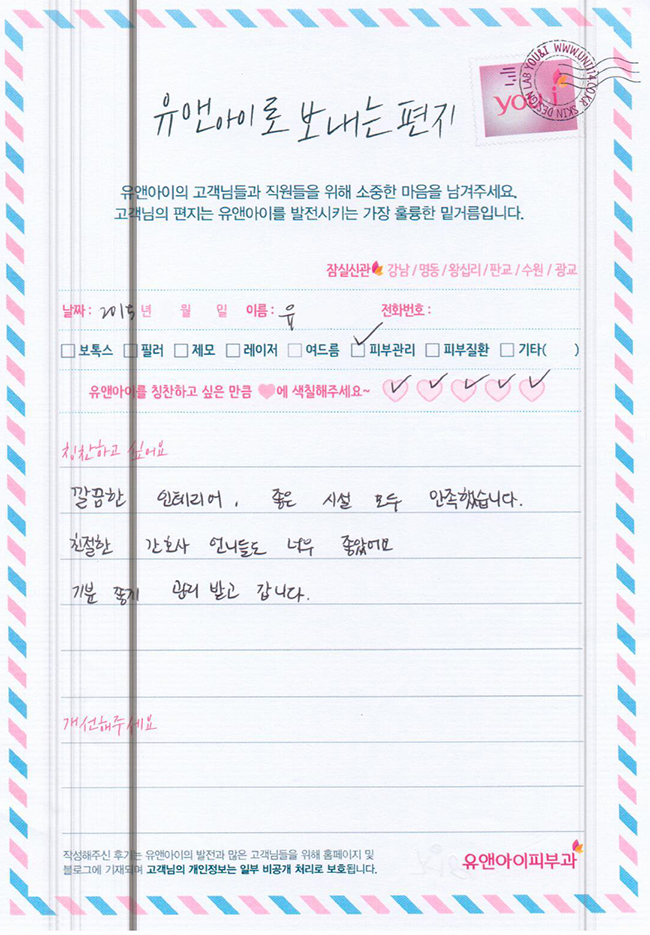 유앤아이로 보내는 편지
you&i
SKIN DESIGN LAB YOU&I WWW.UNI114.CO.KR
유앤아이의 고객님들과 직원들을 위해 소중한 마음을 남겨주세요.
고객님의 편지는 유앤아이를 발전시키는 가장 훌륭한 밑거름입니다.
잠실신관 강남 / 명동 / 왕십리 / 판교 / 수원 / 광교
날짜 : 2015년 월 일 이름 : 유 전화번호 :
보톡스 필러 제모 레이저 여드름 피부관리 피부질환 기타( )
유앤아이를 칭찬하고 싶은 만큼 에 색칠해주세요~
칭찬하고 싶어요
깔끔한 인테리어, 좋은 시설 모두 만족했습니다.
친절한 간호사 언니들도 너무 좋았어요
기분 좋게 관리 받고 갑니다.
개선해주세요
작성해주신 후기는 유앤아이의 발전과 많은 고객님들을 위해 홈페이지 및
블로그에 기재되며 고객님의 개인정보는 일부 비공개 처리로 보호됩니다.
유앤아이피부과